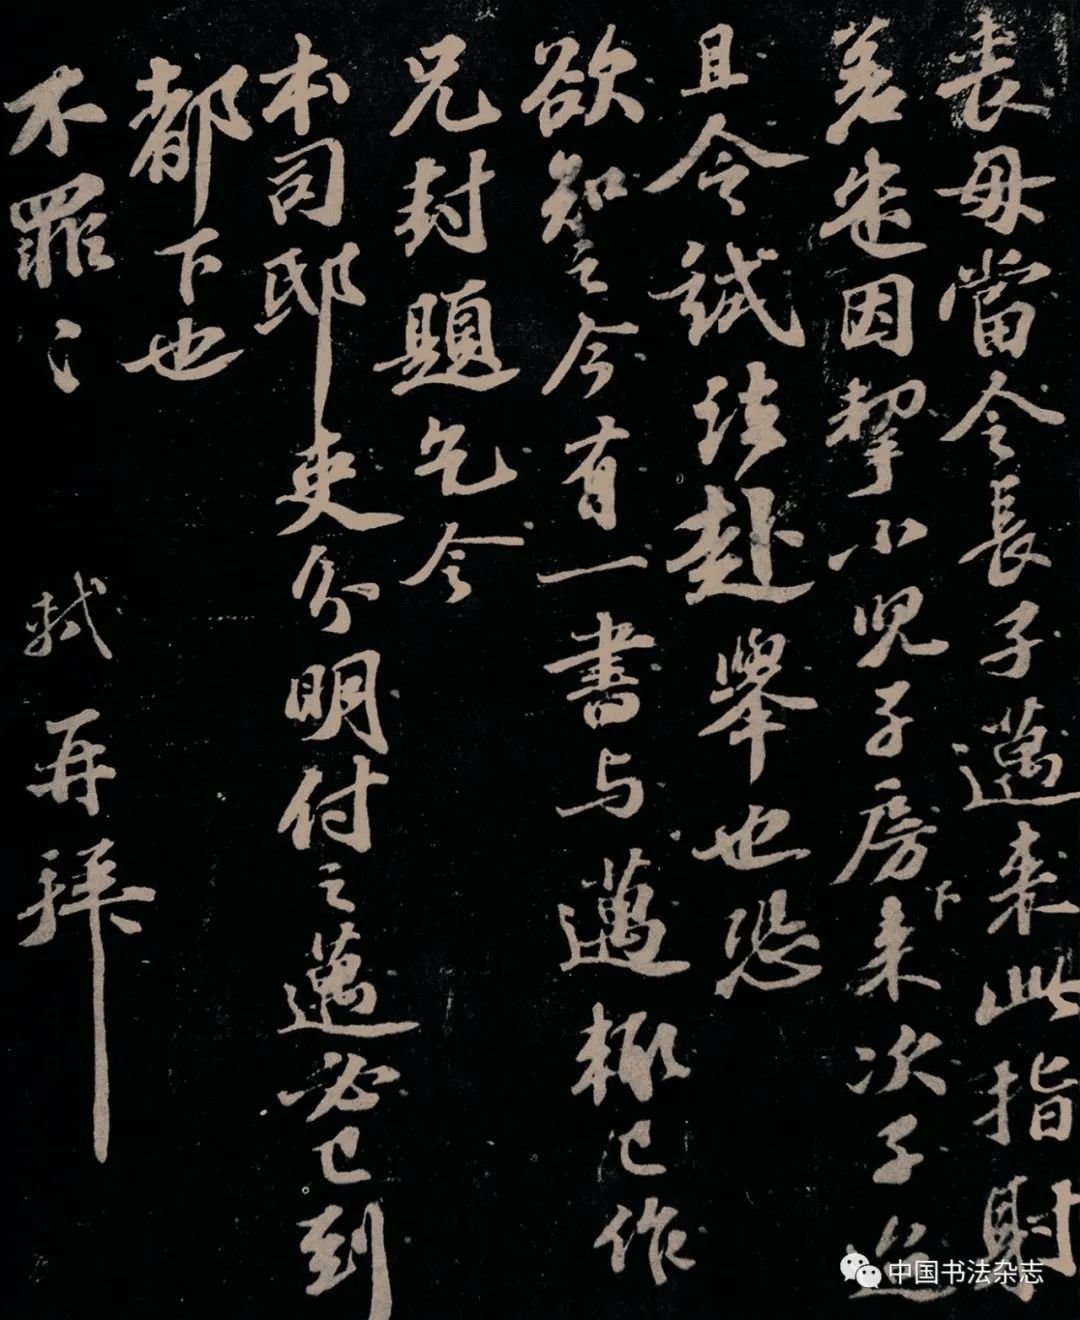 喪母當令長子邁来此指射
差遣因挈小兒子房下来次子迨
且令試法赴舉也恐
欲知之今有一書与邁輒已作
兄封題乞令
本司邸吏分明付之邁必已到
都下也
不罪〻 軾再拜
中国书法杂志